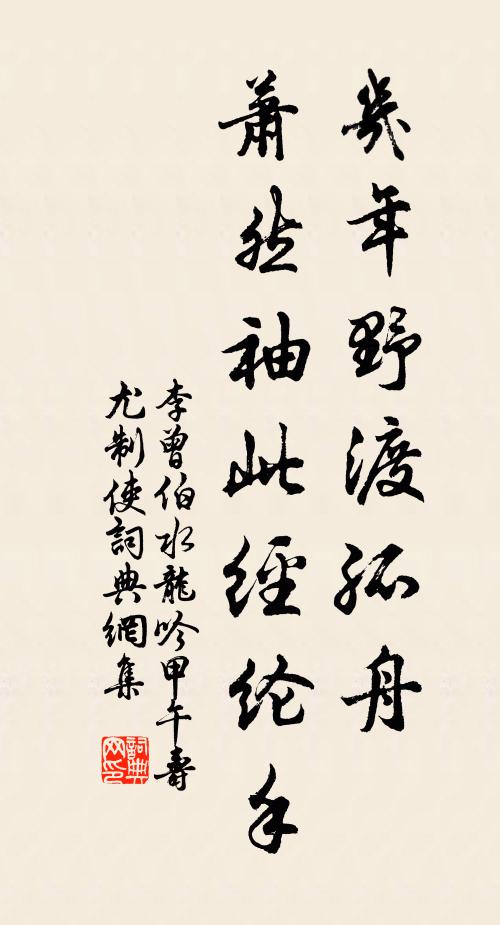 幾年野渡孤舟
蕭然袖此經纶手
李曾伯水龍吟甲午壽
尤制使詞典網集
詞典
网印